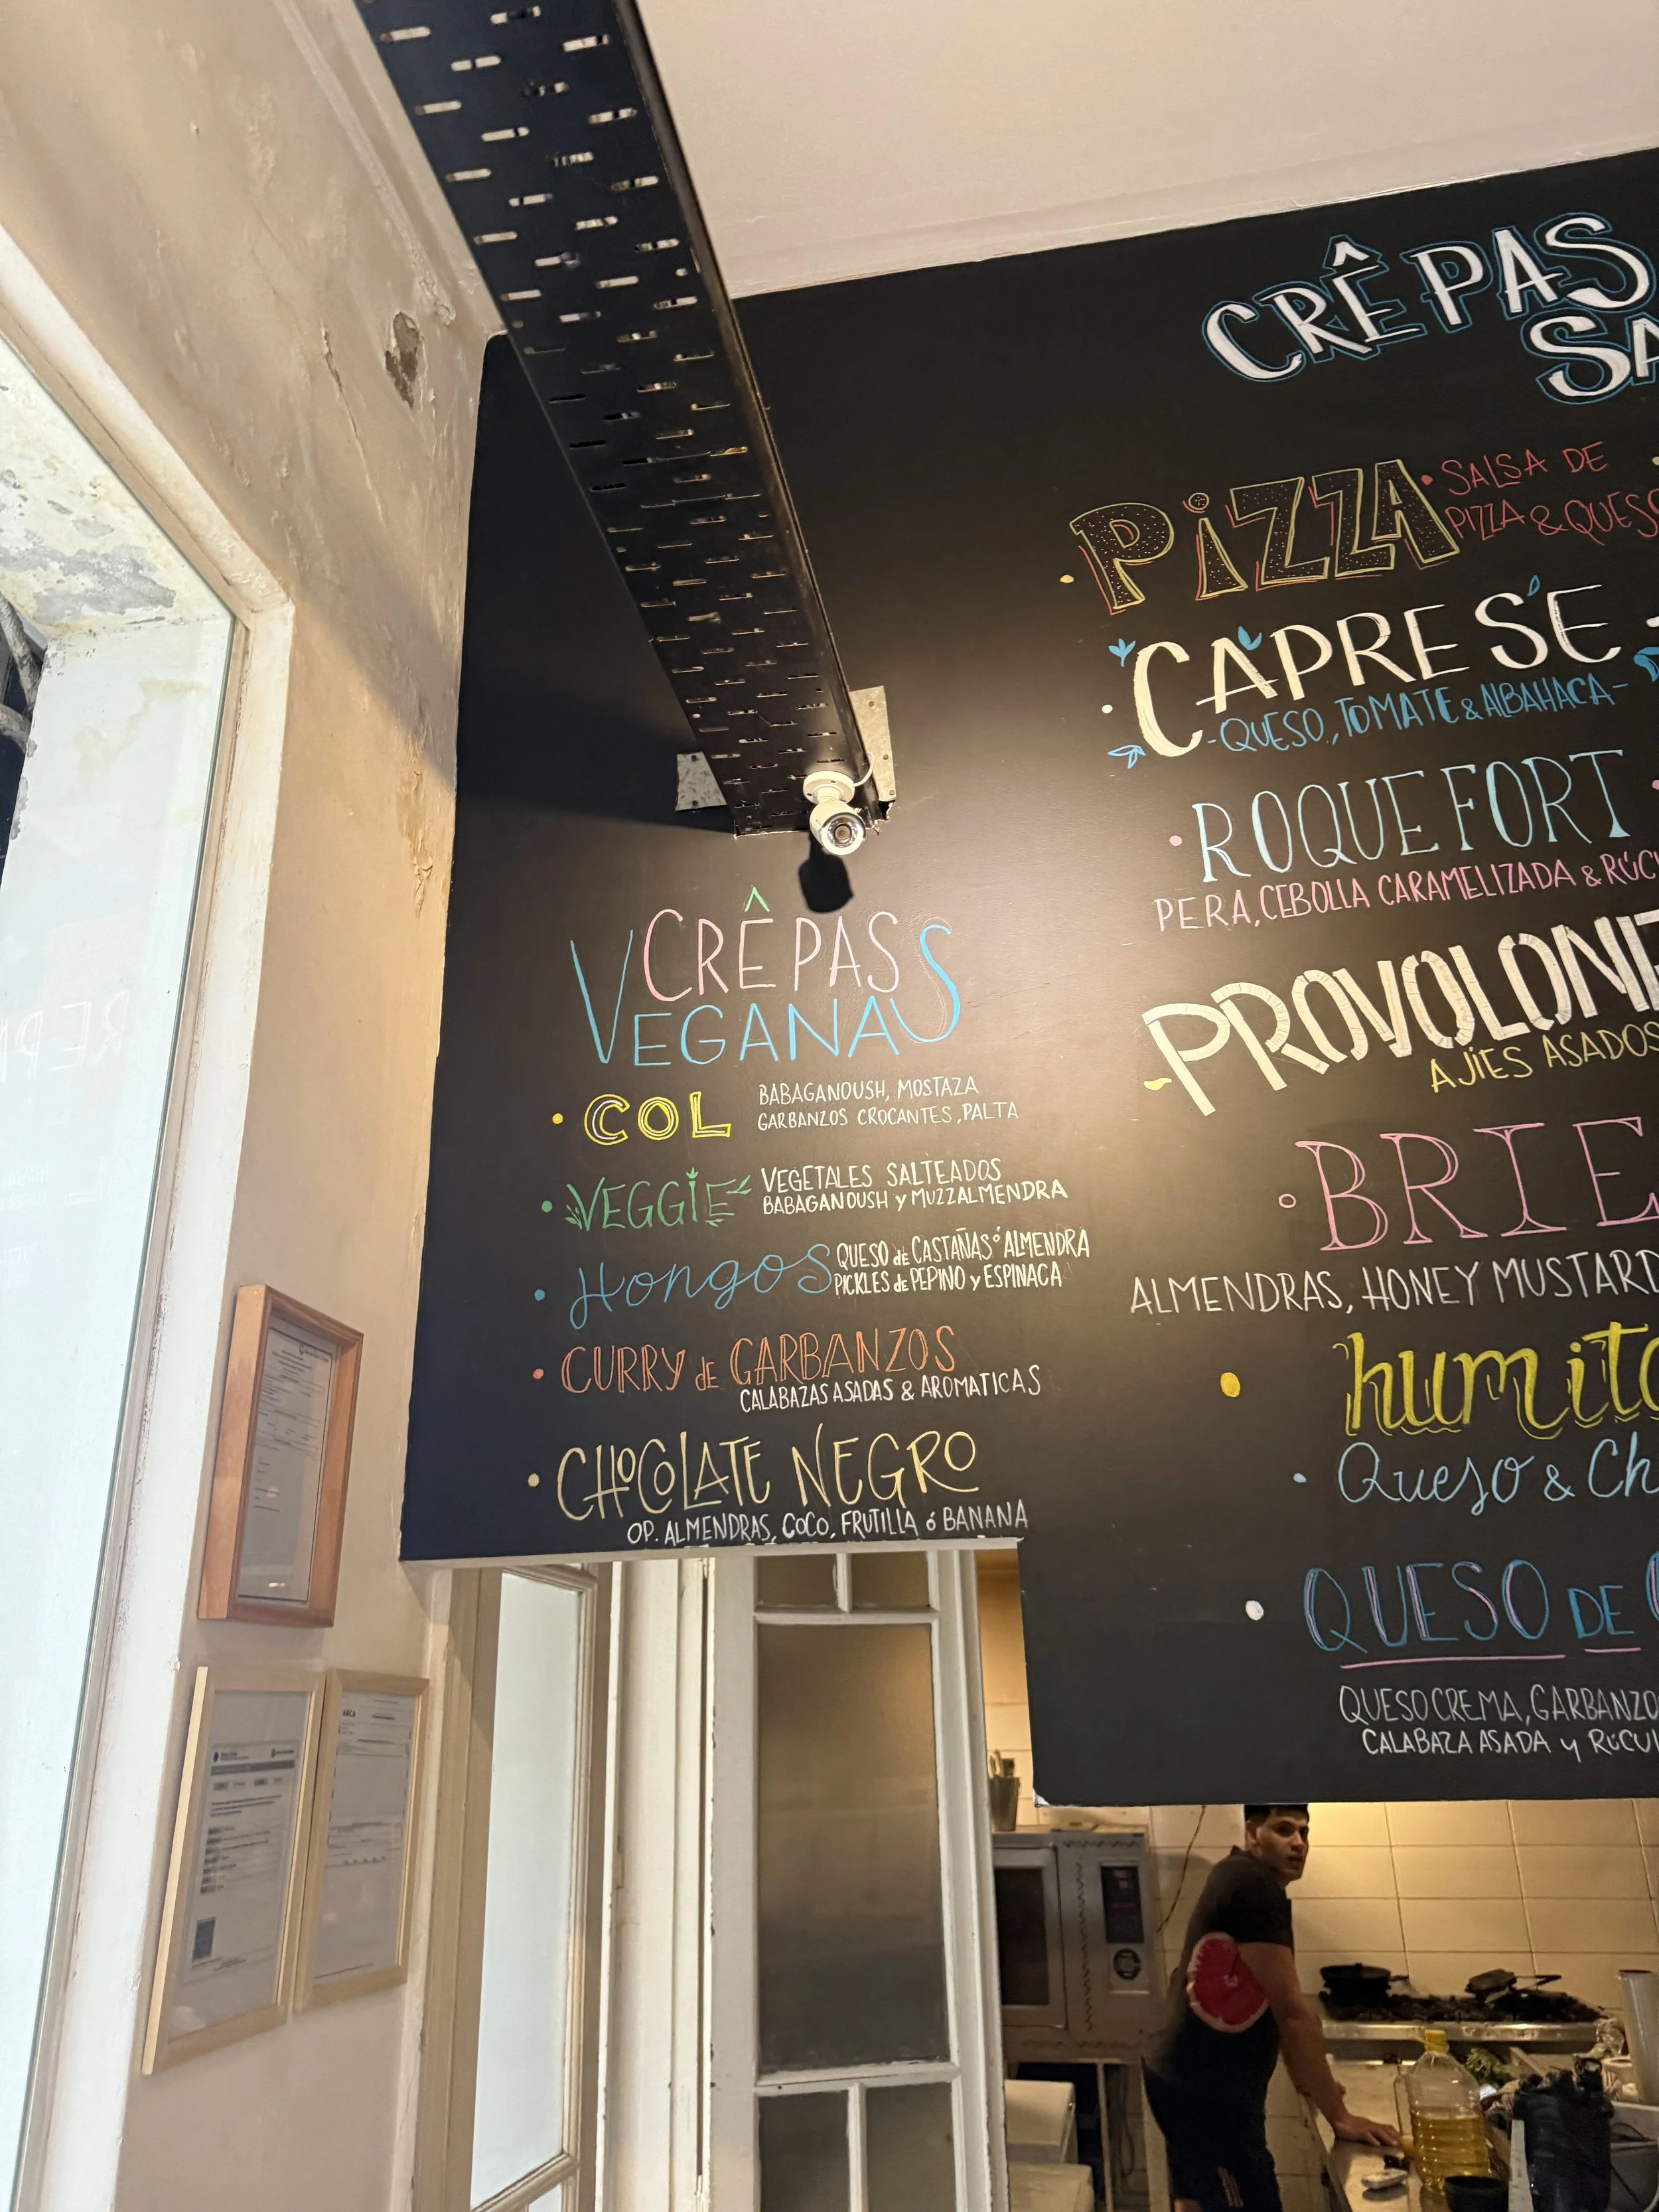 CRÊPAS
VEGANAS
• COL
BABAGANOUSH, MOSTAZA
GARBANZOS CROCANTES, PALTA
• VEGGIE
VEGETALES SALTEADOS
BABAGANOUSH y MUZZALMENDRA
• Hongos
QUESO de CASTAÑAS ó ALMENDRA
PICKLES de PEPINO y ESPINACA
• CURRY de GARBANZOS
CALABAZAS ASADAS & AROMATICAS
• CHOCOLATE NEGRO
OP. ALMENDRAS, COCO, FRUTILLA ó BANANA
CRÊPAS
SA
• PiZZA
• SALSA DE
PIZZA & QUESO
• CAPRESE
-QUESO, TOMATE & ALBAHACA-
• ROQUEFORT
PERA, CEBOLLA CARAMELIZADA & RÚC
- PROVOLONE
AJÍES ASADOS
• BRIE
ALMENDRAS, HONEY MUSTARD
• humita
• Queso & Ch
• QUESO DE
QUESO CREMA, GARBANZO
CALABAZA ASADA y RÚCUL
ARCA